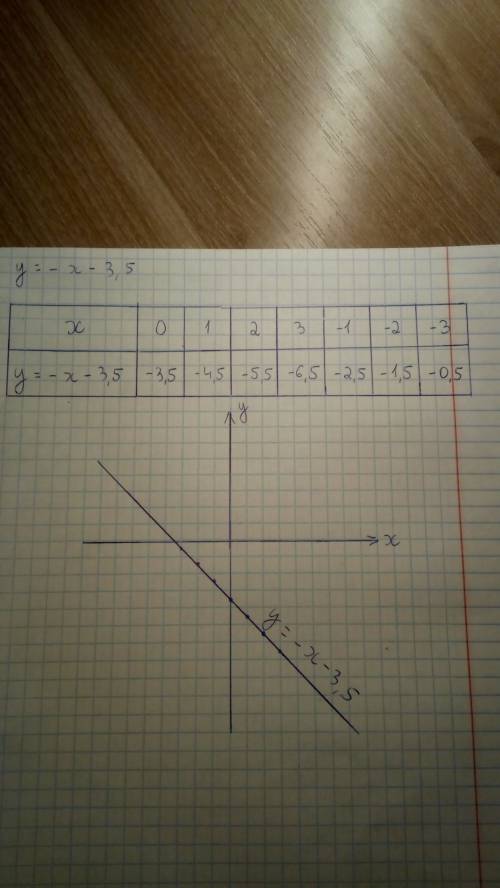 y = - x - 3,5
x 0 1 2 3 -1 -2 -3
y = - x - 3,5 -3,5 -4,5 -5,5 -6,5 -2,5 -1,5 -0,5
y
x
y = - x - 3,5